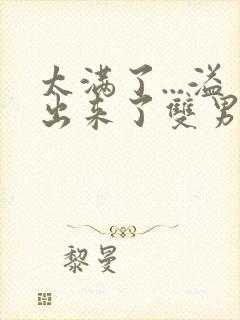 太满了...溢
出来了雙男
黎曼